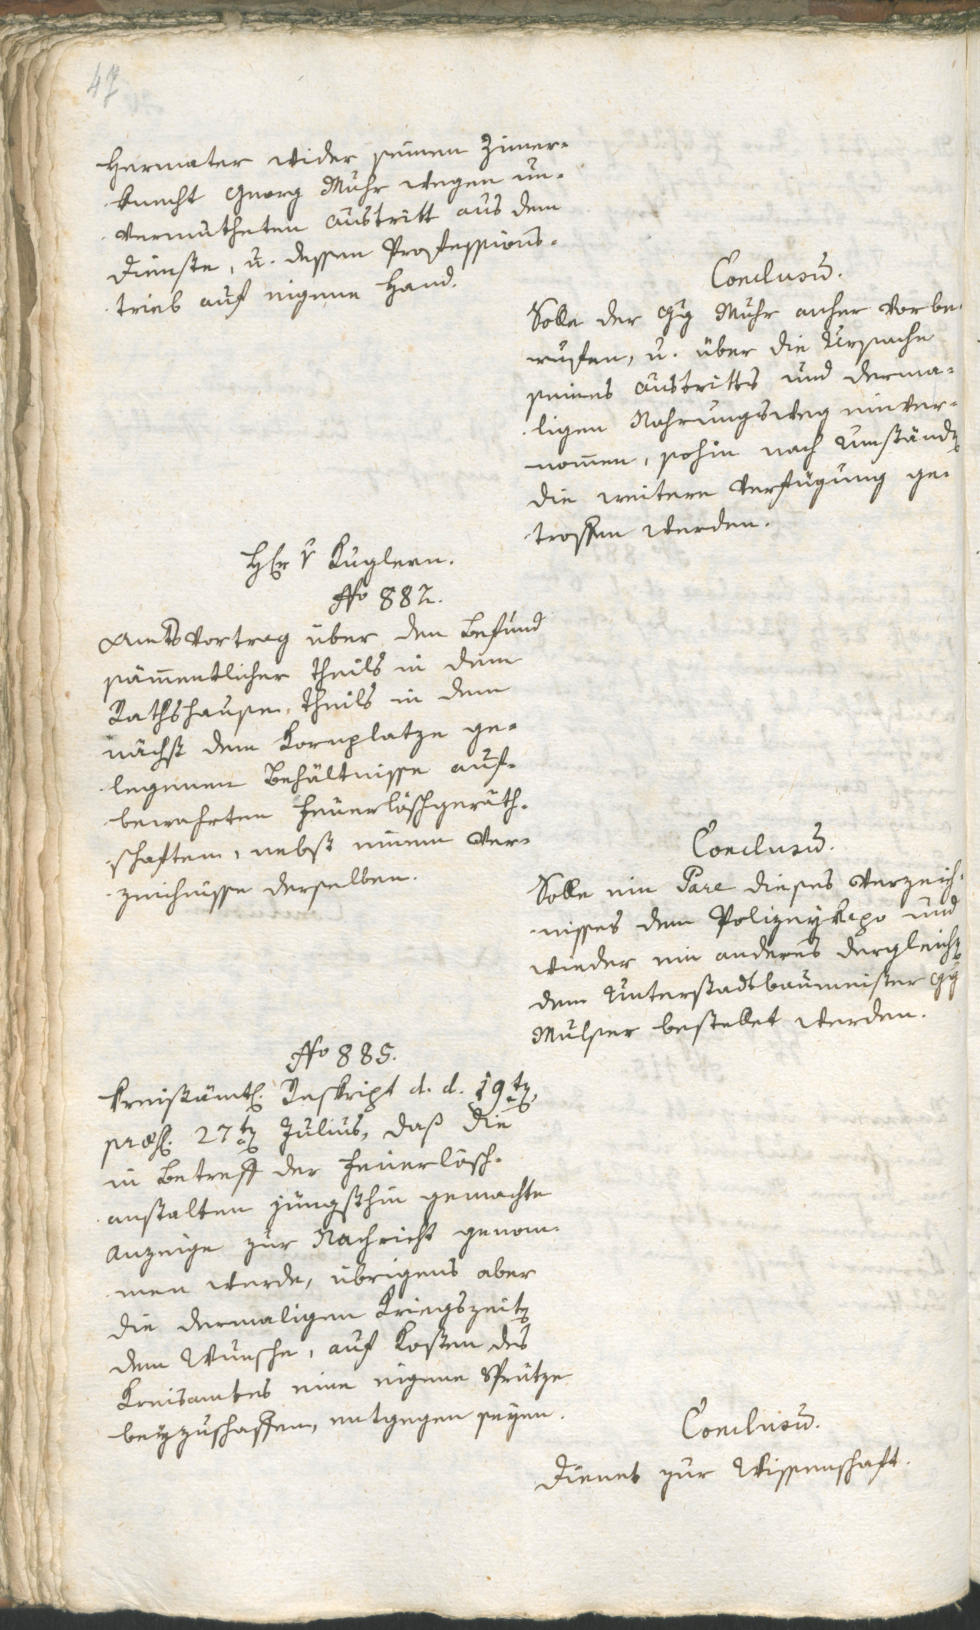 47
Hermater wider seinen Zimer-
knecht Georg Muhr wegen un-
vermutheten Austritt aus dem
Dienste, u. dessen Professions-
trieb auf eigene Hand.
Conclusũ.
Solle der Gg Muhr anher vorbe-
rufen, u. über die Ursache
seines Austritts und derma-
ligen Nahrungsweg einver-
nom̃en, sohin nach Umständen
die weitere Verfügung ge-
troffen werden.
Hr v Kuglern.
No 882.
Amtsvortrag über den Befund
säm̃entlicher theils in dem
Rathshause, theils in dem
nächst dem Kornplatze ge-
legenen Behältnisse auf-
bewahrten Feuerlöschgeräth-
schaften, nebst einem Ver-
zeichnisse derselben.
Conclusũ.
Solle ein Pare dieses Verzeich-
nisses dem Polizeykapo und
wieder ein anderes dergleichen
dem Unterstadtbaumeister Gg
Mulser bestellet werden.
No 885.
Kreisämtl. Reskript d. d. 19ten
præs. 27ten Julius, daß die
in Betreff der Feuerlösch-
anstalten jüngsthin gemachte
Anzeige zur Nachricht genom-
men werde, übrigens aber
die dermaligen Kriegszeiten
dem Wunsche, auf Kosten des
Kreisamtes eine eigene Spritze
beyzuschaffen, entgegen seyen.
Conclusũ.
Dienet zur Wissenschaft.